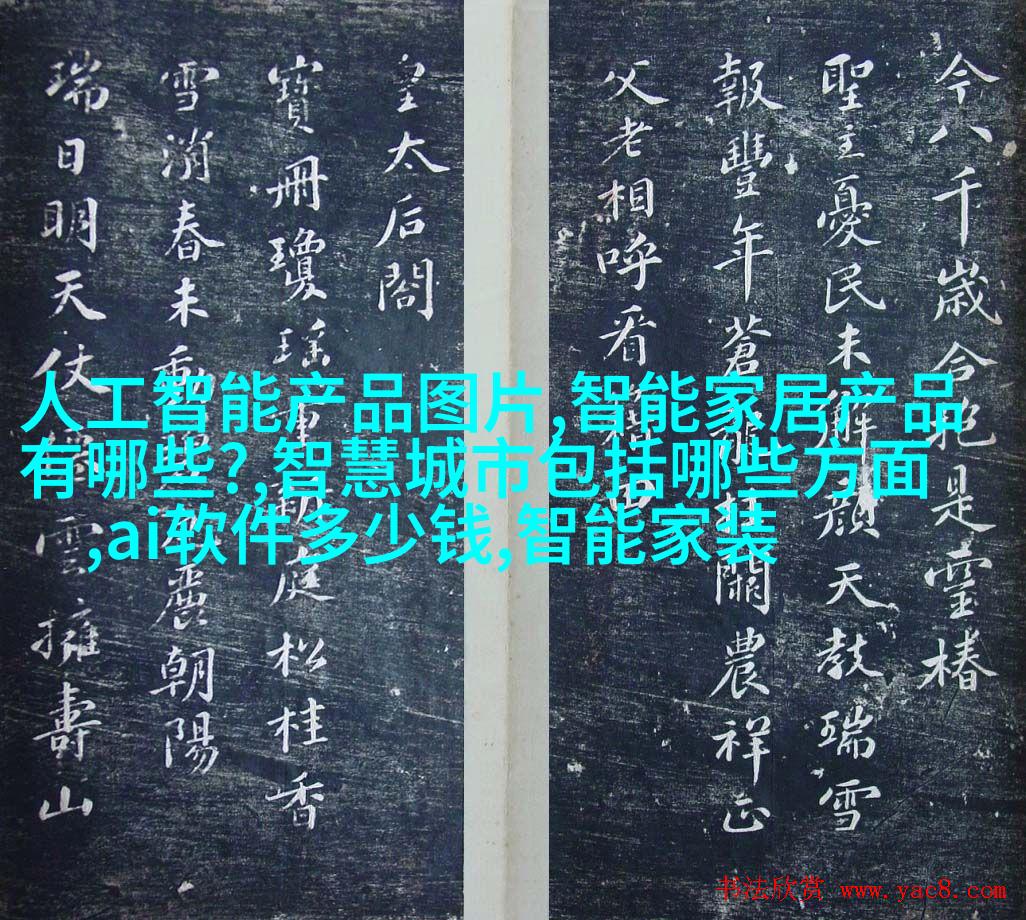 今八千歳合抱是靈椿
聖主憂民未解顔天教瑞雪
報豐年蒼龍挂闕農祥正
父老相呼看田
皇太后閤
寶冊瓊瑶重庭松桂香
雪消春未動麗朝陽
瑞日明天仗雲擁壽山
人工智能产品图片,智能家居产品
有哪些?,智慧城市包括哪些方面
,ai软件多少钱,智能家装
书法欣赏 www.yac8.com